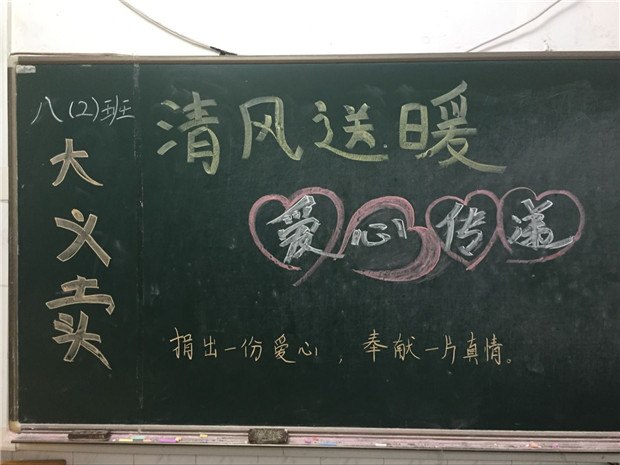 八(2)班
大义卖
清风送暖
爱心传递
捐出一份爱心，奉献一片真情。